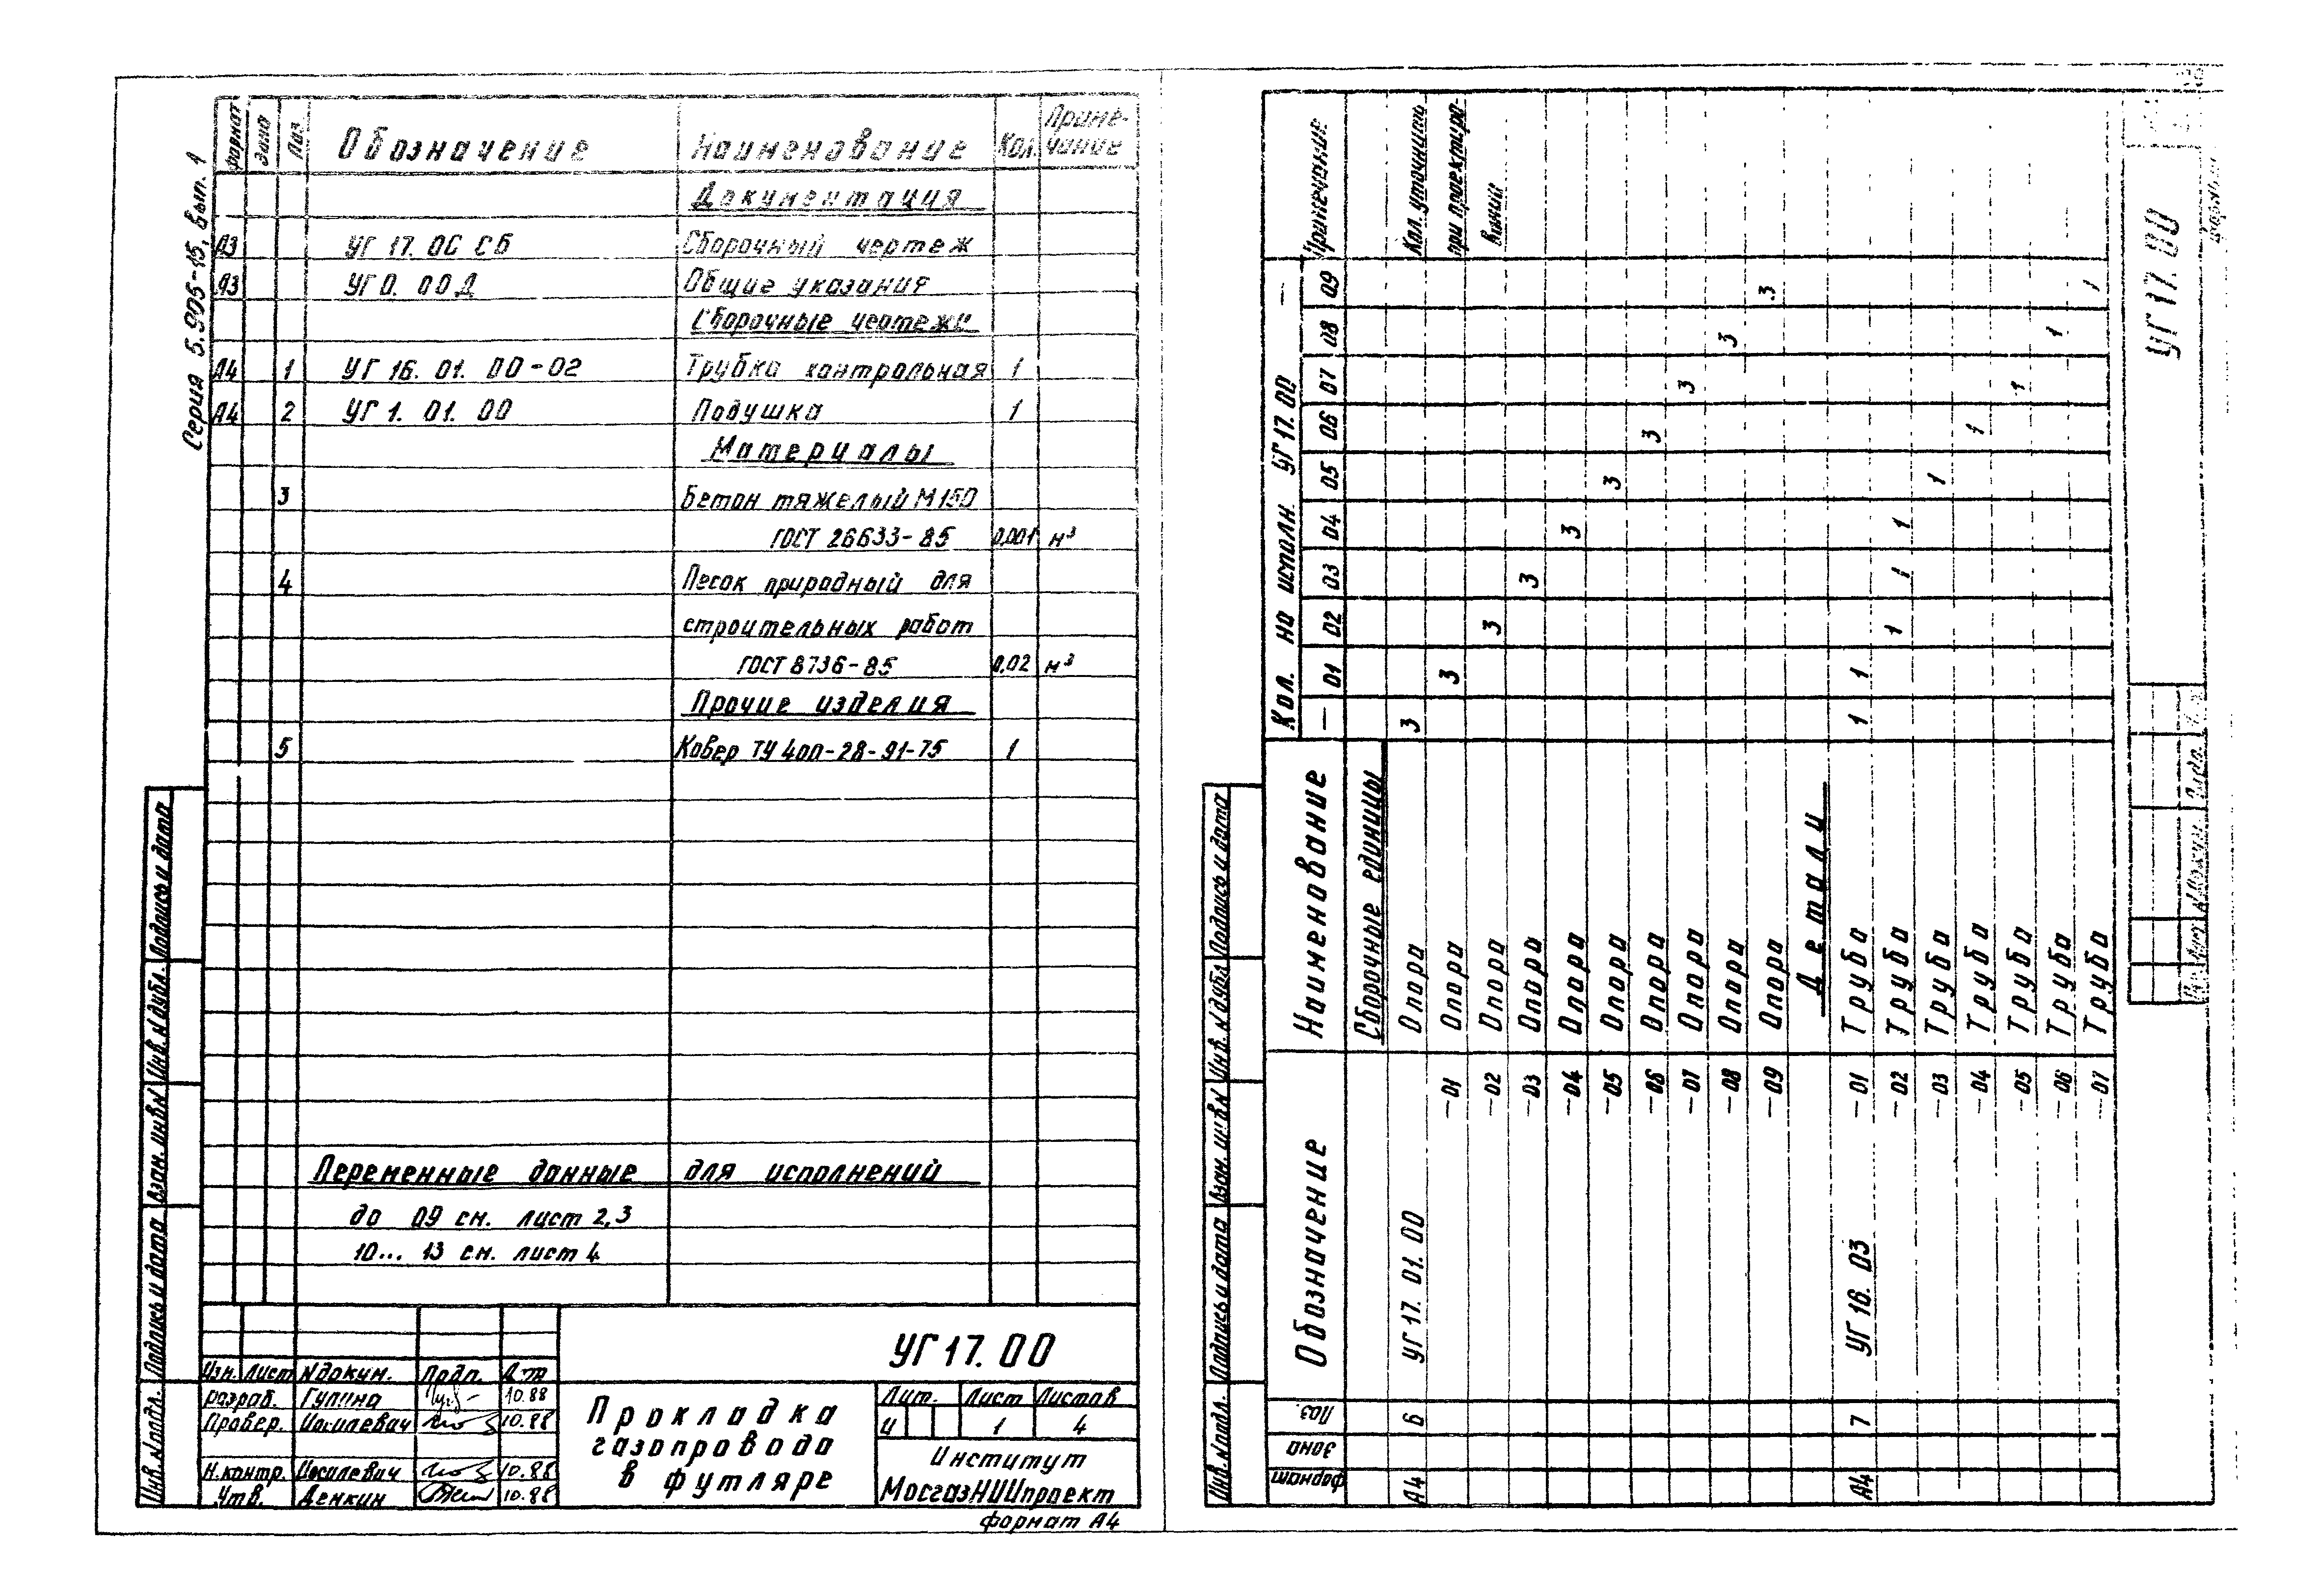 Серия 5.905-15, вып. 1
Формат Зона Поз. Обозначение Наименование Кол. Приме-
чание
Документация
А3 УГ 17. 00 СБ Сборочный чертеж
А3 УГ 0. 00 Д Общие указания
Сборочные чертежи
А4 1 УГ 16. 01. 00-02 Трубка контрольная 1
А4 2 УГ 1. 01. 00 Подушка 1
Материалы
3 Бетон тяжелый М150
ГОСТ 26633-85 0,001 м³
4 Песок природный для
строительных работ
ГОСТ 8736-85 0,02 м³
Прочие изделия
5 Ковер ТУ 400-28-91-75 1
Переменные данные для исполнений
до 09 см. лист 2,3
10... 13 см. лист 4
Инв. N подл. Подпись и дата Взам. инв N Инв. N дубл. Подпись и дата
УГ 17. 00
Изм. Лист N докум. Подп. Дата
Разраб. Гулина 10.88
Провер. Иосилевич 10.88
Н.контр. Иосилевич 10.88
Утв. Денкин 10.88
Прокладка
газопровода
в футляре
Лит. Лист Листов
И 1 4
Институт
МосгазНИИпроект
формат А4
Формат Зона Поз. Обозначение Наименование Кол. на исполн. УГ 17. 00 — Примечание
— 01 02 03 04 05 06 07 08 09
Сборочные единицы
А4 6 УГ 17. 01. 00 Опора 3 Кол. уточнить
—01 Опора 3 при проектиро-
—02 Опора 3 вании
—03 Опора 3
—04 Опора 3
—05 Опора 3
—06 Опора 3
—07 Опора 3
—08 Опора 3
—09 Опора 3
Детали
А4 7 УГ 16. 03 —01 Труба 1 1
—02 Труба 1 1 1
—03 Труба 1
—04 Труба 1
—05 Труба 1
—06 Труба 1
—07 Труба 1
Инв. N подл. Подпись и дата Взам. инв N Инв. N дубл. Подпись и дата
Лист N докум. Подп.
УГ 17. 00